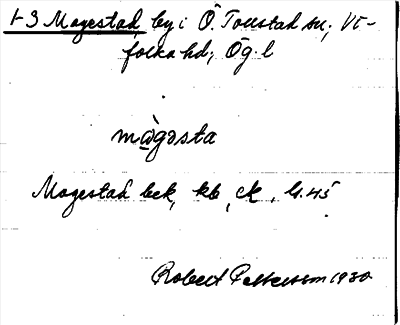 1-3 Magestad, by i Ö. Tollstad sn, Vi-
folka hd, Ög. l
màgǝsta
Magestad bek, kb, ek, G. 45
Robert Pettersson 1930